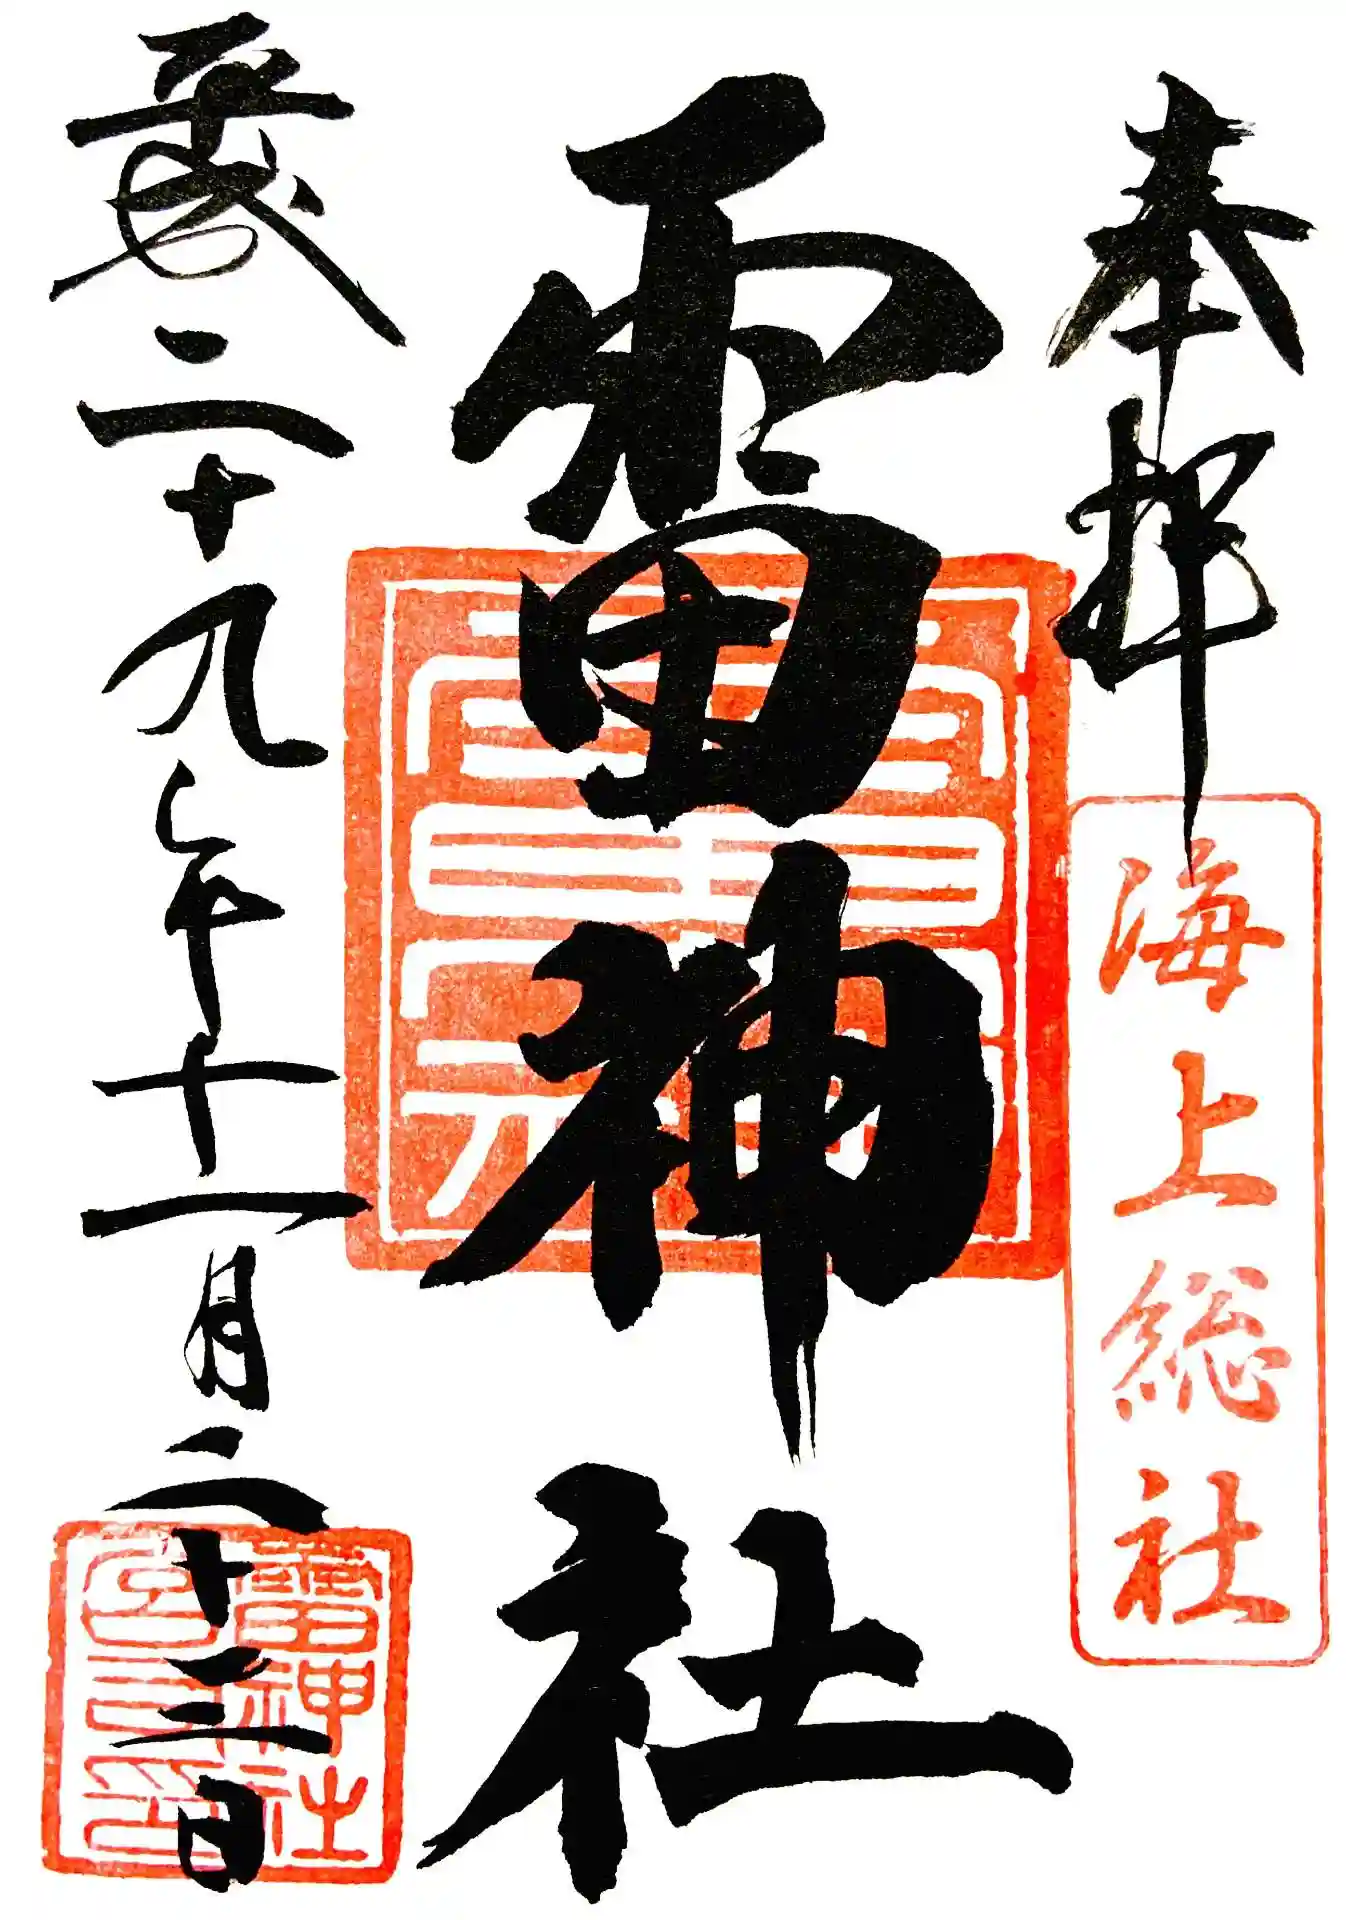 奉拝
海上総社
雷神社
平成二十九年十一月二十三日
雷神社
宮司之印